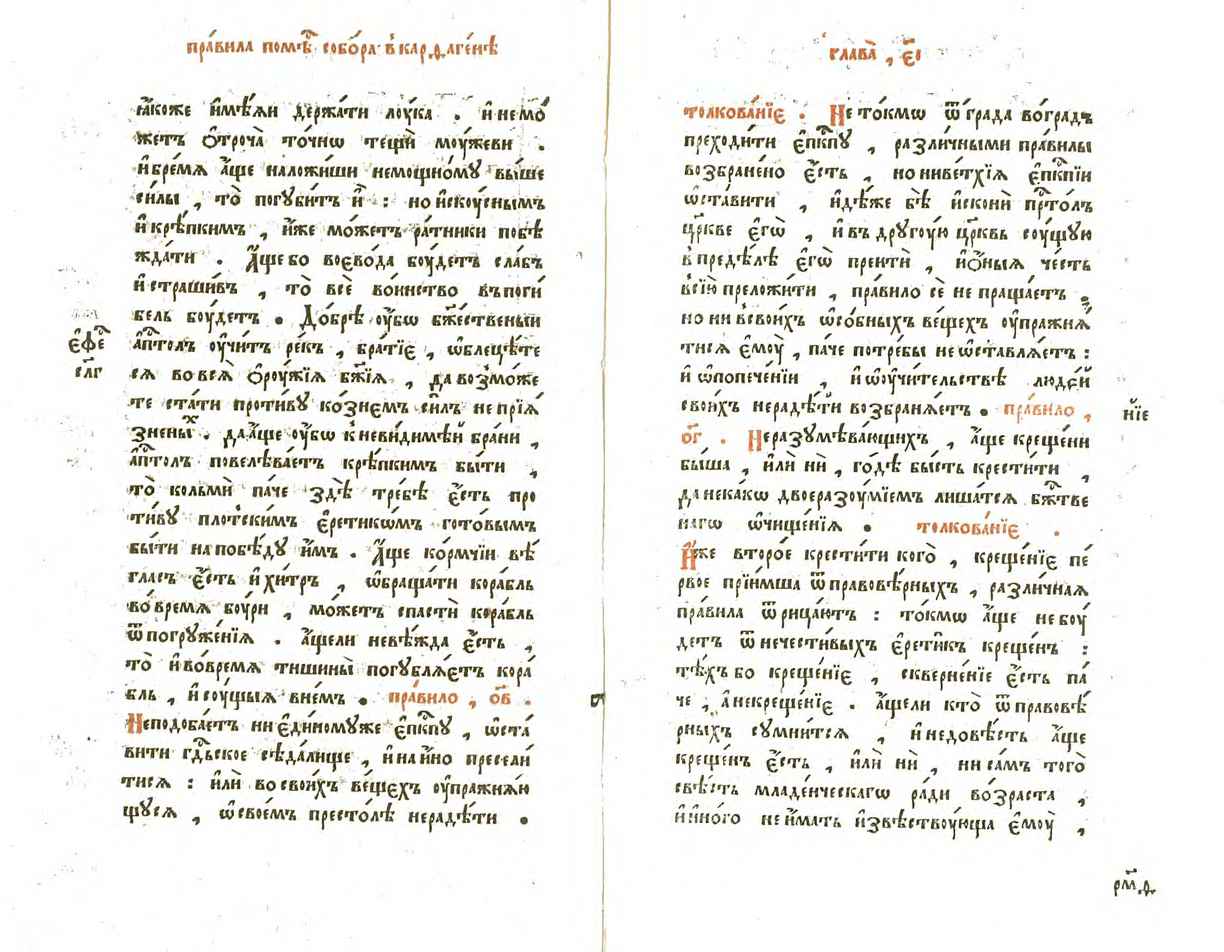 пра́вила помѣ́ⷭ҇ собо́ра в̾карѳаге́нѣ
ꙗ҆́коже и҆мѣ́ѧи держа́ти лоу́ка . и҆ немо́
жетъ ѻ҆троча̀ то́чнѡ тещѝ моу́жеви .
и҆ бре́мѧ а҆́ще наложи́ши немощно́мꙋ вы́ше
си́лы , то̀ погꙋ́битъ и҆̀ : но и҆скоу́снымъ
и҆ крѣ́пкимъ , и҆̀же мо́жетъ ра́тники побѣ
жда́ти . А҆́ще бо воево́да боу́детъ сла́бъ
и҆ страши́въ , то̀ всѐ во́инство въ поги́
бель боу́детъ . До́брѣ оу҆́бѡ бж҃е́ственыи
Е҆фе́ⷭ҇
а҆пⷭ҇лъ оу҆́читъ ре́къ , бра́тїе , ѡ҆блецѣ́те
сл҃г
сѧ во всѧ̀ ѻ҆роу́жїѧ бж҃їѧ , да возмо́же
те ста́ти проти́вꙋ ко́знемъ си́лъ непрїѧ́
зненыⷯ . да а҆́ще оу҆́бѡ к̾ неви́димѣй бра́ни ,
а҆пⷭ҇лъ повелѣва́етъ крѣ́пкимъ бы́ти ,
то̀ кольмѝ па́че здѣ̀ тре́бѣ є҆́сть про
ти́вꙋ пло́тскимъ є҆ретикѡ́мъ гото́вымъ
бы́ти на побѣ́дꙋ и҆̀мъ . А҆́ще ко́рмчїи вѣ́
гласъ є҆́сть и҆ хи́тръ , ѡ҆браща́ти кора́бль
во вре́мѧ боу́ри , мо́жетъ спастѝ кора́бль
ѿ погрꙋже́нїѧ . А҆́щели невѣ́жда є҆́сть ,
то̀ и҆ во вре́мѧ тишины̀ погꙋблѧ́етъ кора́
бль , и҆ соу́щыѧ в̾не́мъ . пра́вило , о҃в .
Неподоба́етъ ни є҆ди́номꙋже є҆пⷭ҇кпꙋ , ѡ҆ста́
вити гдⷭ҇ьское сѣда́лище , и҆ на и҆́но пресели́
тисѧ : и҆лѝ во свои́хъ ве́щехъ оу҆пражнѧ́ю
щꙋсѧ , ѡ҆ свое́мъ престо́лѣ неради́ти .
глава̀ , є҃і
толкова́нїе . Не то́кмѡ ѿ гра́да во гра́дъ
преходи́ти є҆пⷭ҇кпꙋ , разли́чными пра́вилы
возбране́но є҆́сть , но ни ве́тхїѧ є҆пⷭ҇кпїи
ѡ҆ста́вити , и҆дѣ́же бѣ̀ и҆сконѝ прⷭ҇то́лъ
цр҃кве є҆гѡ̀ , и҆ въ дрꙋгоу́ю цр҃квь соу́щꙋю
в̾ предѣ́лѣ є҆гѡ̀ преитѝ , и҆ ѻ҆́ныѧ че́сть
в̾ сїю̀ преложи́ти , пра́вило сѐ не праща́етъ .
но ни в̾ свои́хъ ѡ҆со́бныхъ ве́щехъ оу҆пражнѧ́
тисѧ є҆моу̀ , па́че потре́бы не ѡ҆ставлѧ́етъ :
и҆ ѡ҆ попече́нїи , и҆ ѡ҆ оу҆чи́тельствѣ люде́й
свои́хъ нерадѣ́ти возбранѧ́етъ . пра́вило ,
ні҃е
о҃г . Неразꙋмѣва́ющихъ , а҆́ще креще́ни
бы́ша , и҆лѝ нѝ , го́дѣ бы́сть крести́ти ,
да нека́кѡ двоеразоу́мїемъ лиша́тсѧ бжⷭ҇тве
нагѡ ѡ҆чище́нїѧ . толкова́нїе .
И҆́же второ́е крести́ти кого̀ , креще́нїе пе́
рвое прїи́мша ѿ правовѣ́рныхъ , разли́чнаѧ
пра́вила ѿрица́ютъ : то́кмѡ а҆́ще не боу́
детъ ѿ нечести́выхъ є҆рети́къ креще́нъ :
тѣ́хъ бо креще́нїе , скверне́нїе є҆́сть па́
че , а҆ некреще́нїе . а҆́щели кто̀ ѿ правовѣ́
рныхъ сꙋмни́тсѧ , и҆ недовѣ́сть а҆́ще
креще́нъ є҆́сть , и҆лѝ нѝ , ни са́мъ того̀
свѣ́сть младе́нческагѡ ра́ди во́зраста ,
и҆ и҆но́го не и҆́мать и҆звѣ́ствоующа є҆моу̀ ,
рм҃ѳ.